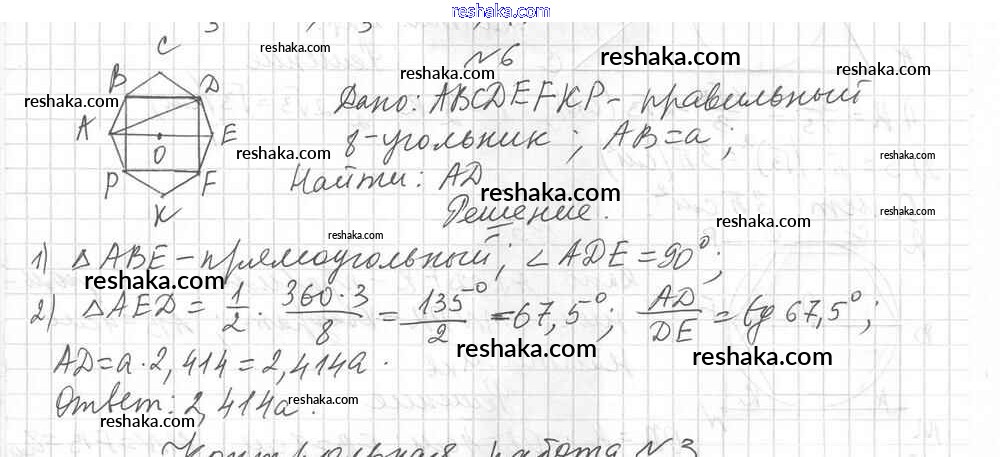 reshaka.com
C
N6
B D
Дано: ABCDEFKP - правильный
A E
8-угольник; AB=a;
O
P F
Найти: AD
K
Решение.
1) △ABE - прямоугольный; ∠ADE = 90°;
2) △AED = 1/2 · 360·3/8 = 135°/2 = 67,5°; AD/DE = tg 67,5°;
AD = a · 2,414 = 2,414a.
Ответ: 2,414a.
Контрольная работа N3
reshaka.com
reshaka.com
reshaka.com
reshaka.com
reshaka.com
reshaka.com
reshaka.com
reshaka.com
reshaka.com
reshaka.com
reshaka.com
reshaka.com
reshaka.com
reshaka.com
reshaka.com
reshaka.com
reshaka.com
reshaka.com